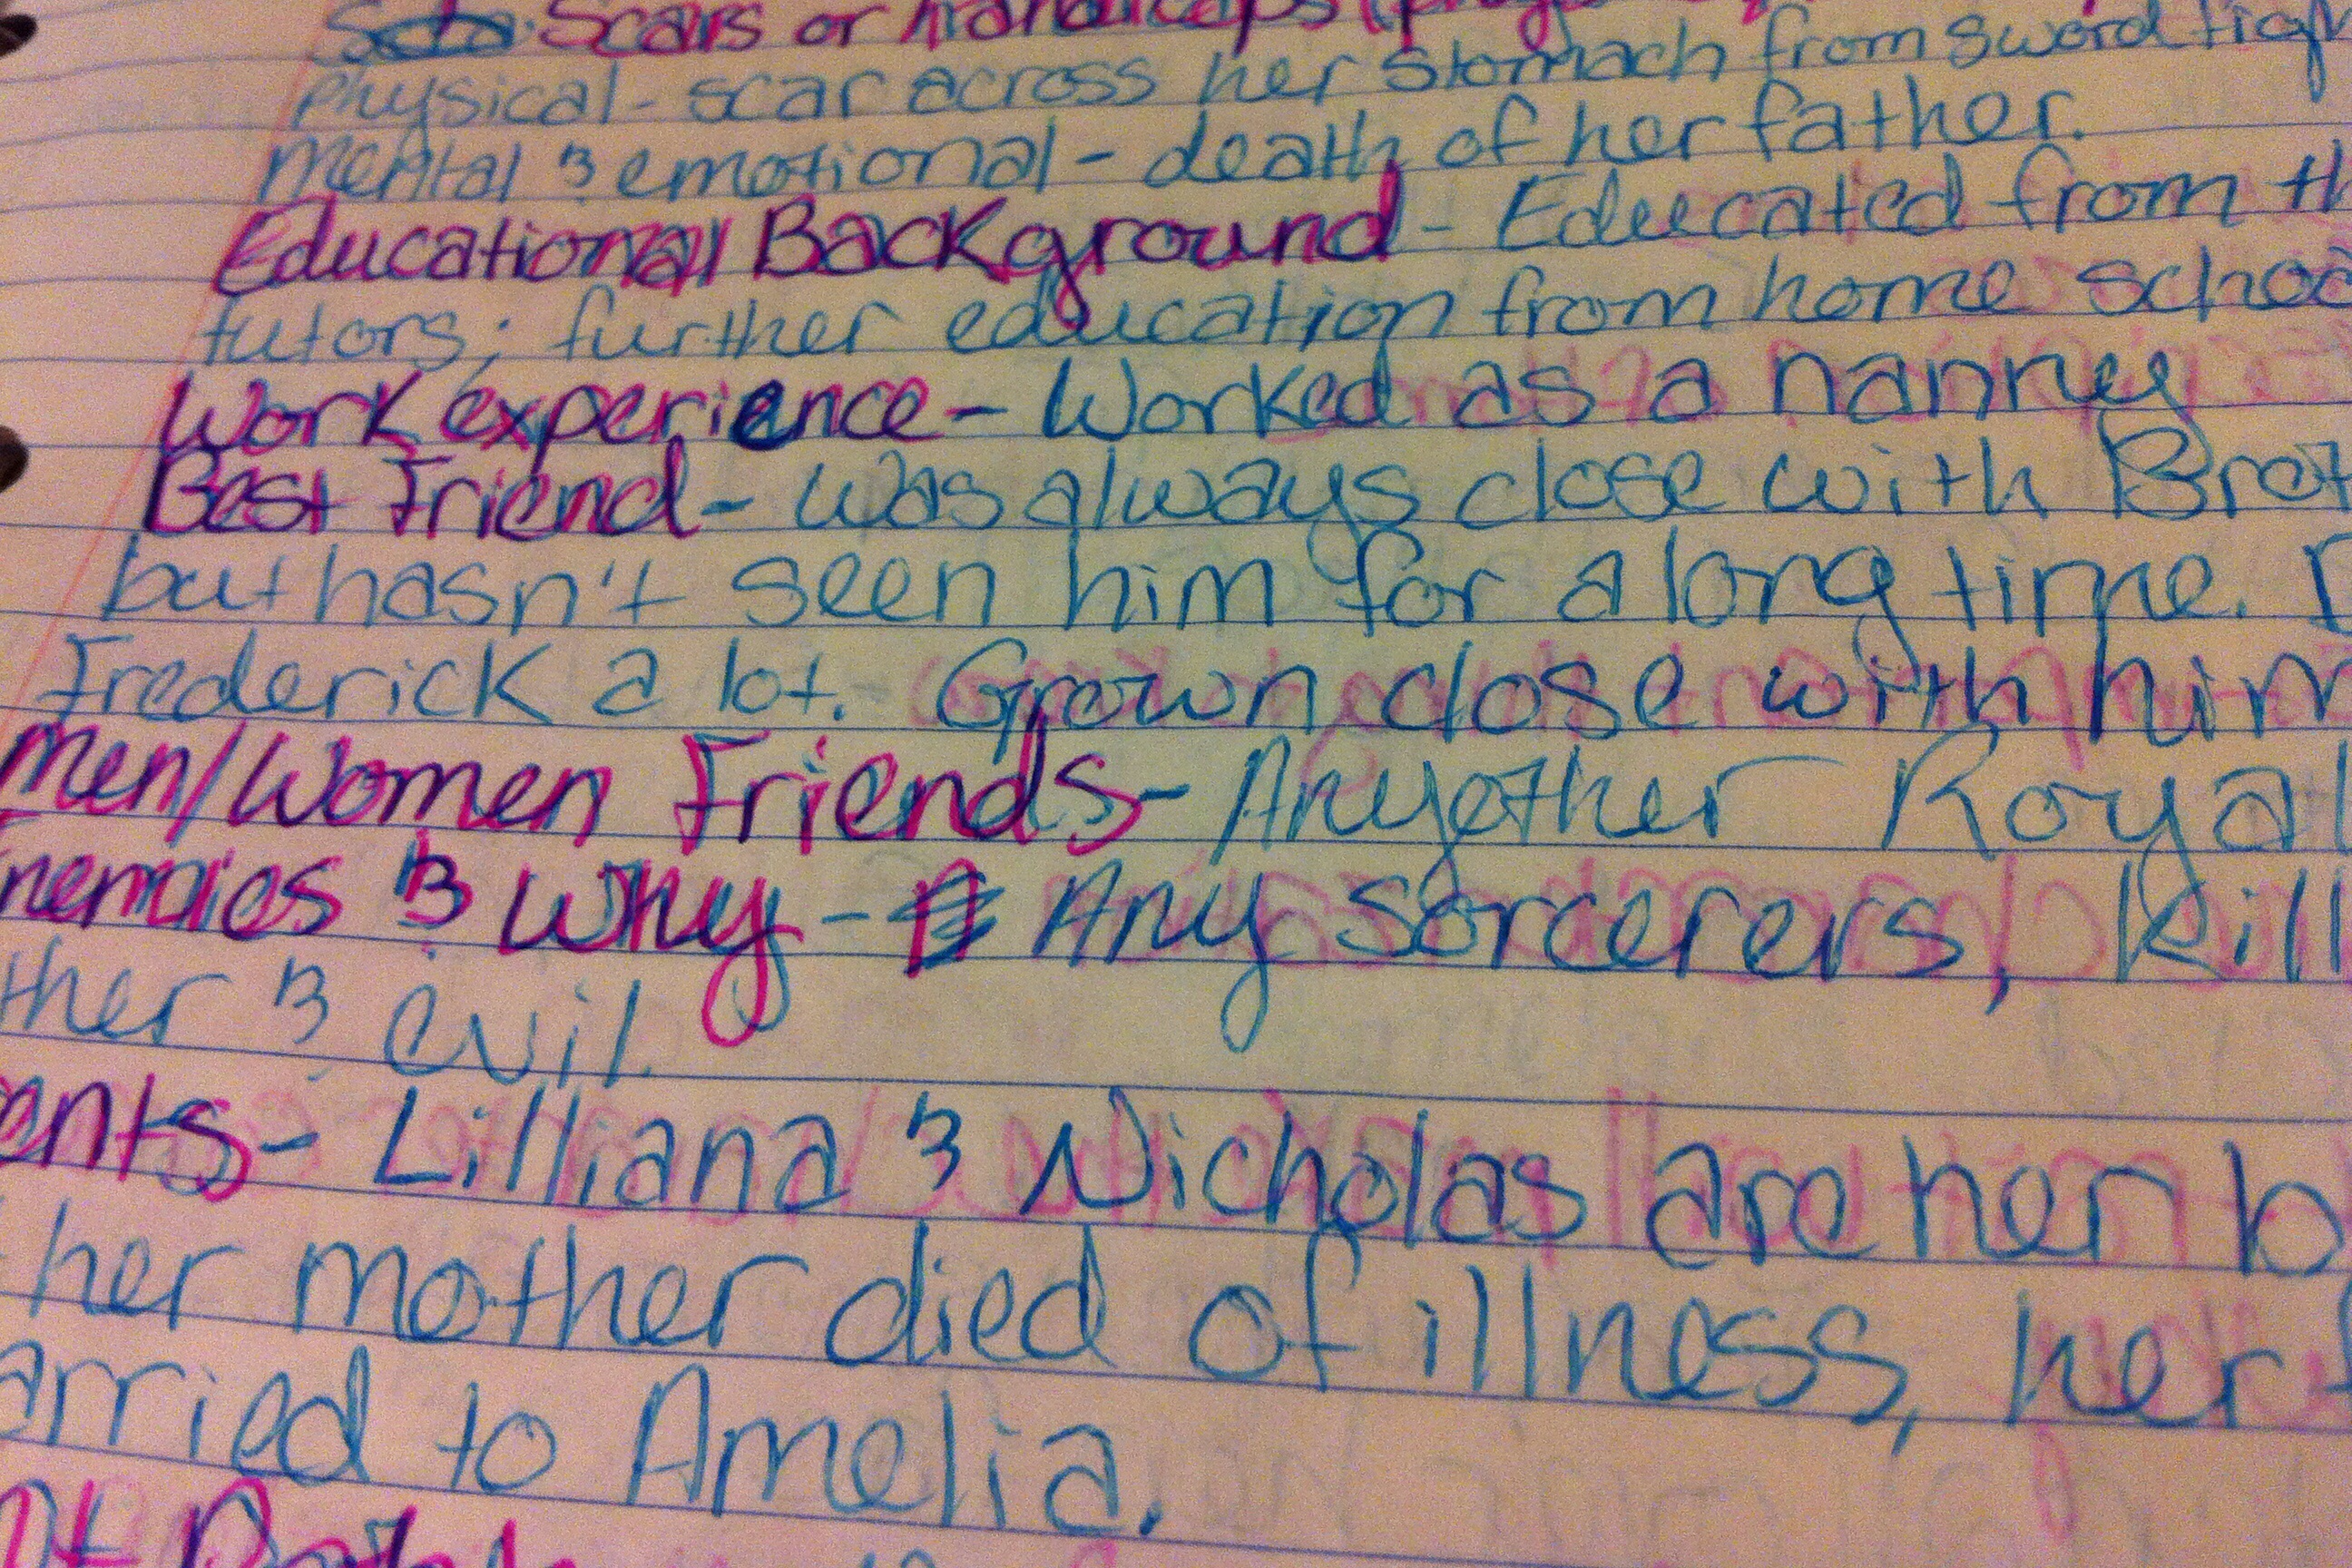 Scars or handicaps (phy
Physical - scar across her stomach from sword figh
Mental & emotional - death of her father.
Educational Background - Educated from th
tutors; further education from home schoo
Work experience - Worked as a nanny
Best Friend - was always close with Brot
but hasn't seen him for a long time.
Frederick a lot. Grown close with him
Men/Women Friends - Any other Royal
Enemies & Why - Any sorcerers, kill
ther & evil.
ents - Lilliana & Nicholas are her b
her mother died of illness, her f
arried to Amelia.